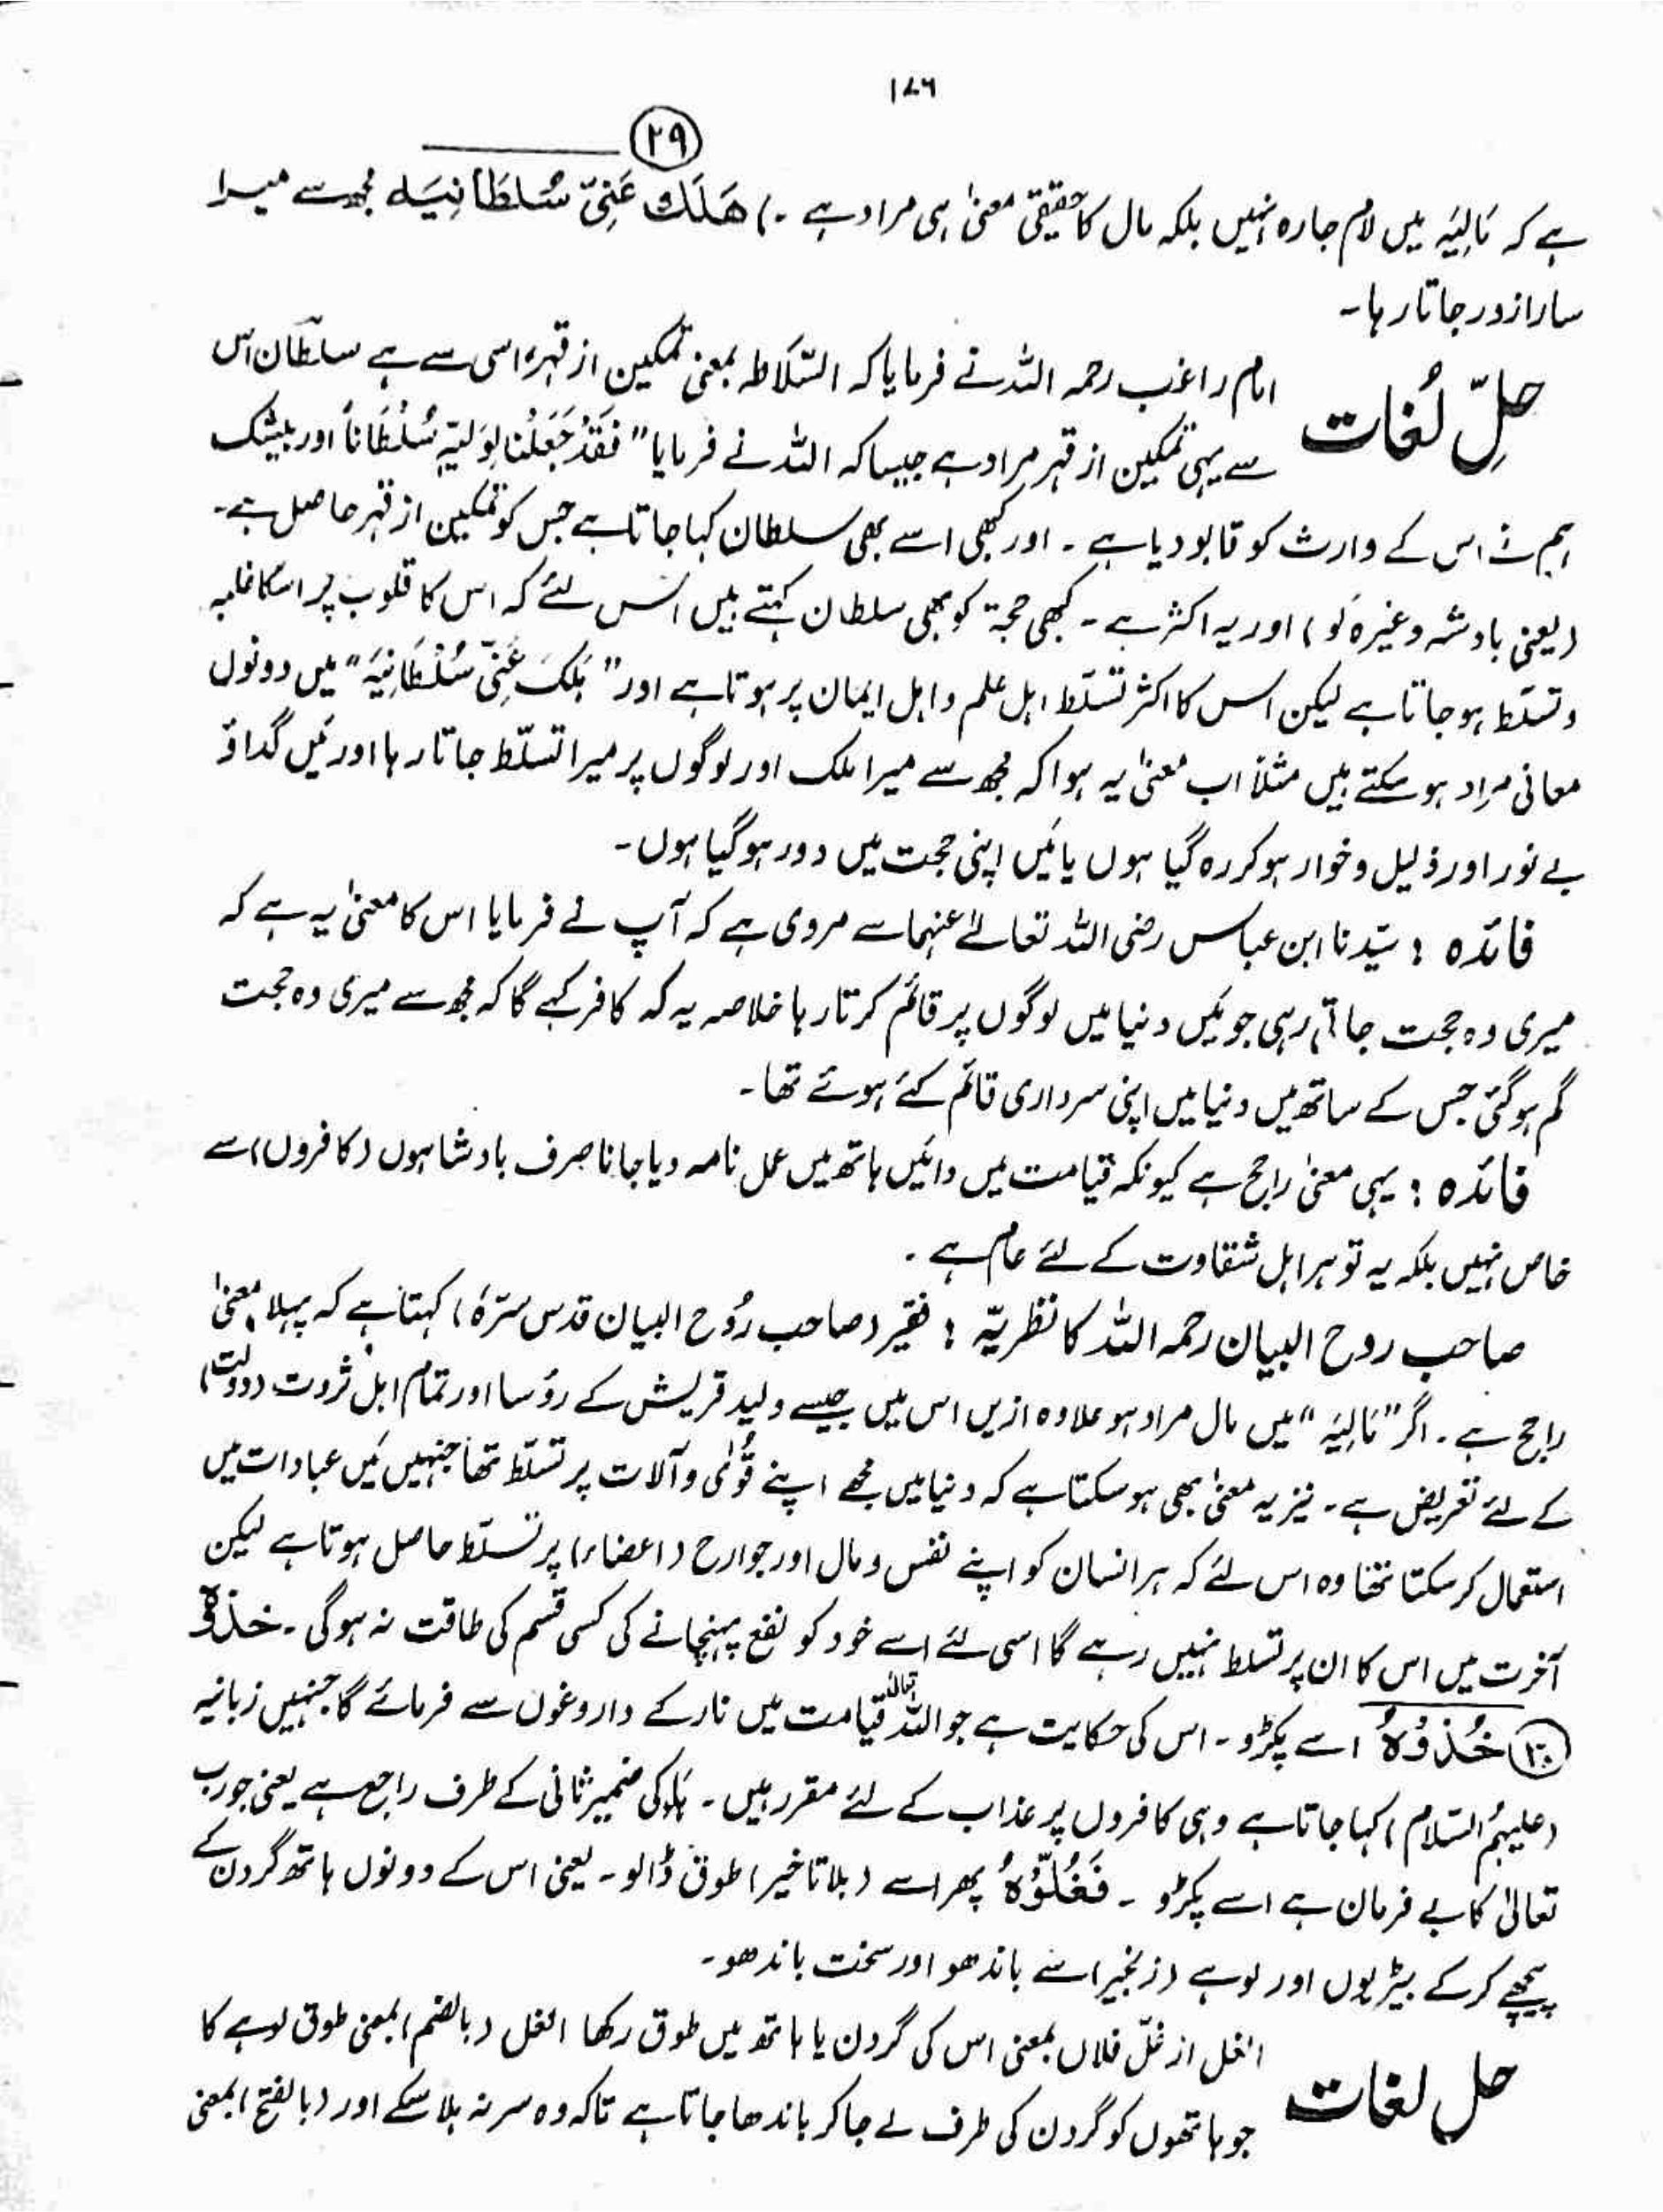 ۱۷۶
۲۹
ہے کہ مَالِیَہ میں لام جارہ نہیں بلکہ مال کا حقیقی معنیٰ ہی مراد ہے ۔) هَلَكَ عَنِّىْ سُلطَانِيَه مجھ سے میرا
سارا زور جاتا رہا۔
حلِّ لُغات
امام راغب رحمہ اللہ نے فرمایا کہ السّلاطہ بمعنی تمکین از قہر، اسی سے ہے سلطان اس
سے یہی تمکین از قہر مراد ہے جیسا کہ اللہ نے فرمایا " فَقَدْ جَعَلْنَا لِوَلِیِّہٖ سُلْطَاناً اور بیشک
ہم نے اس کے وارث کو قابو دیا ہے ۔ اور کبھی اسے بھی سلطان کہا جاتا ہے جس کو تمکین از قہر حاصل ہے۔
(یعنی بادشہ وغیرہ کو) اور یہ اکثر ہے ۔ کبھی حجۃ کو بھی سلطان کہتے ہیں اس لئے کہ اس کا قلوب پر اسکا غلبہ
و تسلّط ہو جاتا ہے لیکن اس کا اکثر تسلّط اہل علم و اہل ایمان پر ہوتا ہے اور " ہَلَکَ عَنِّیْ سُلْطَانِیَہْ" میں دونوں
معانی مراد ہو سکتے ہیں مثلاً اب معنیٰ یہ ہوا کہ مجھ سے میرا ملک اور لوگوں پر میرا تسلّط جاتا رہا اور میں گداؤ
بے نور اور ذلیل و خوار ہو کر رہ گیا ہوں یا میں اپنی حجت میں دور ہو گیا ہوں۔
فائدہ : سیّدنا ابن عباس رضی اللہ تعالےٰ عنہما سے مروی ہے کہ آپ نے فرمایا اس کا معنیٰ یہ ہے کہ
میری وہ حجت جاتی رہی جو میں دنیا میں لوگوں پر قائم کرتا رہا خلاصہ یہ کہ کافر کہے گا کہ مجھ سے میری وہ حجت
گم ہو گئی جس کے ساتھ میں دنیا میں اپنی سرداری قائم کئے ہوئے تھا۔
فائدہ : یہی معنیٰ راجح ہے کیونکہ قیامت میں دائیں ہاتھ میں عمل نامہ دیا جانا صرف بادشاہوں (کافروں) سے
خاص نہیں بلکہ یہ تو ہر اہل شقاوت کے لئے عام ہے ۔
صاحب روح البیان رحمہ اللہ کا نظریّہ : فقیر (صاحب رُوح البیان قدس سّرہٗ) کہتا ہے کہ پہلا معنیٰ
راجح ہے ۔ اگر "مَالِیَہ" میں مال مراد ہو علاوہ ازیں اس میں جیسے ولید قریش کے رؤسا اور تمام اہل ثروت (دولت)
کے لئے تعریض ہے ۔ نیز یہ معنیٰ بھی ہو سکتا ہے کہ دنیا میں مجھے اپنے قُوٰی و آلات پر تسلّط تھا جنہیں میں عبادات میں
استعمال کر سکتا تھا وہ اس لئے کہ ہر انسان کو اپنے نفس و مال اور جوارح (اعضاء) پر تسلّط حاصل ہوتا ہے لیکن
آخرت میں اس کا ان پر تسلط نہیں رہے گا اسی لئے اسے خود کو نفع پہنچانے کی کسی قسم کی طاقت نہ ہوگی ۔ خذوہ
۳۰ خُذُوْهُ اسے پکڑو ۔ اس کی حکایت ہے جو اللہ تعالٰی قیامت میں نار کے داروغوں سے فرمائے گا جنہیں زبانیہ
(علیہم السّلام) کہا جاتا ہے وہی کافروں پر عذاب کے لئے مقرر ہیں ۔ ہاء کی ضمیر ثانی کے طرف راجع ہے یعنی جو رب
تعالیٰ کا بے فرمان ہے اسے پکڑو ۔ فَغُلُّوْهُ پھر اسے (بلا تاخیر) طوق ڈالو ۔ یعنی اس کے دونوں ہاتھ گردن کے
پیچھے کر کے بیڑیوں اور لوہے (زنجیر) سے باندھو اور سخت باندھو۔
حل لغات
الغل از غلّ فلاں بمعنی اس کی گردن یا ہاتھ میں طوق رکھا الغل (بالضم) بمعنی طوق لوہے کا
جو ہاتھوں کو گردن کی طرف لے جا کر باندھا جاتا ہے تاکہ وہ سر نہ ہلا سکے اور (بالفتح) بمعنی